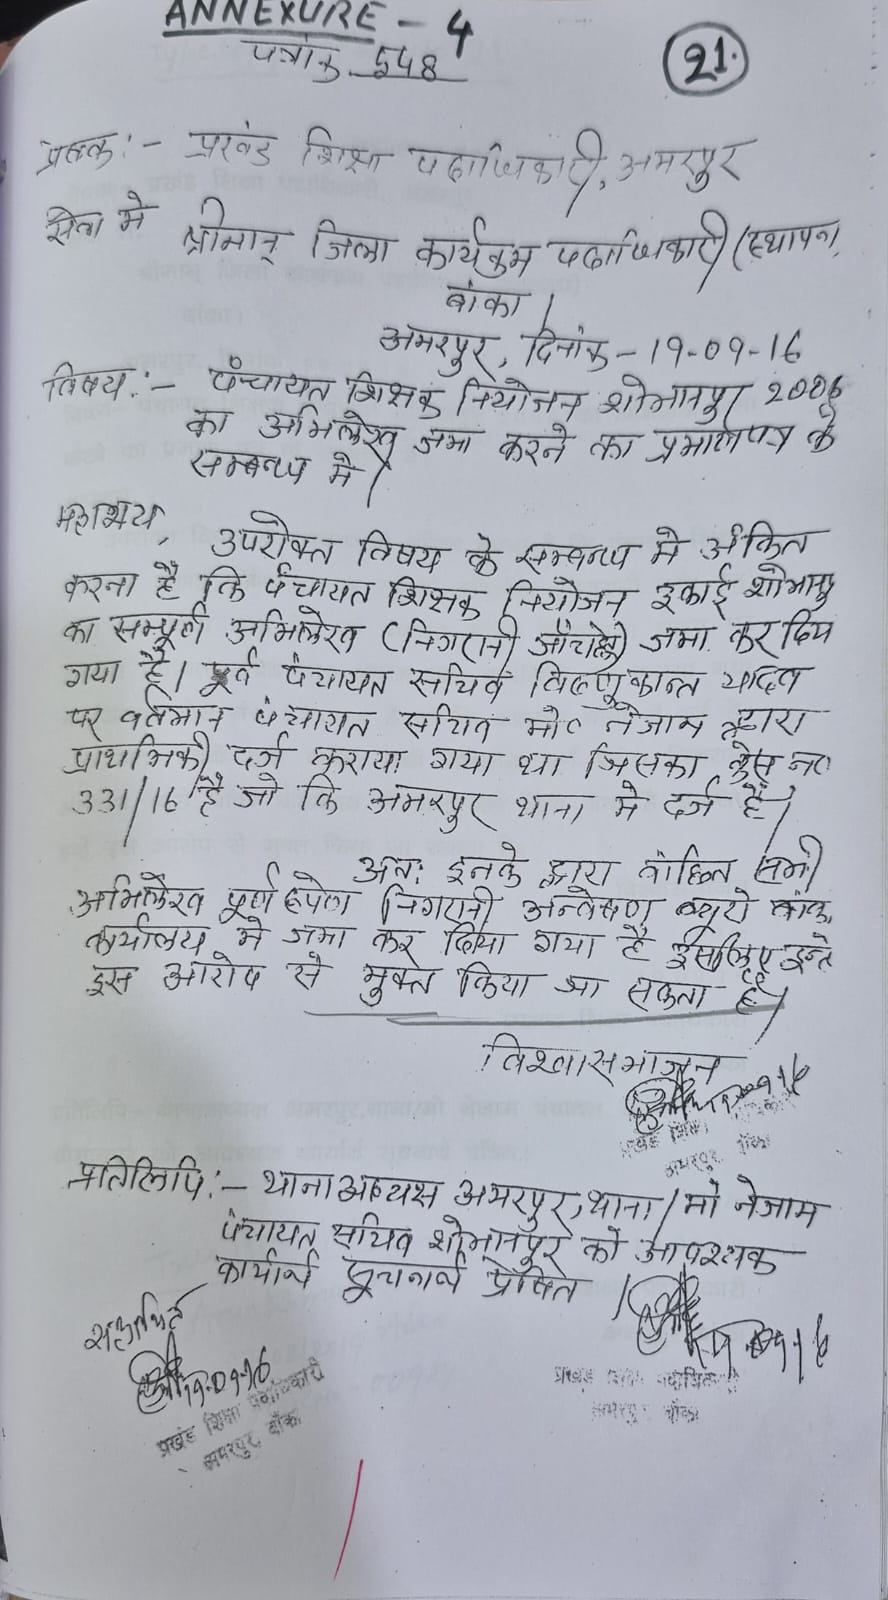 ANNEXURE - 4
पत्रांक 548
21.
प्रेषक :- प्रखंड शिक्षा पदाधिकारी, अमरपुर
सेवा मे
श्रीमान् जिला कार्यक्रम पदाधिकारी (स्थापना,
बांका।
अमरपुर, दिनांक - 19-09-16
विषय :- पंचायत शिक्षक नियोजन शोभानपुर 2006
का अभिलेख जमा करने का प्रमाणपत्र के
सम्बन्ध मे।
महाशय,
उपरोक्त विषय के सम्बन्ध मे अंकित
करना है कि पंचायत शिक्षक नियोजन इकाई शोभानपुर
का सम्पूर्ण अभिलेख (निगरानी जाँच हेतु) जमा कर दिया
गया है। पूर्व पंचायत सचिव विष्णुकान्त यादव
पर वर्तमान पंचायत सचिव मो० नेजाम द्वारा
प्राथमिकी दर्ज कराया गया था जिसका केस न०
331/16 है जो कि अमरपुर थाना मे दर्ज है।
अतः इनके द्वारा वांछित सभी
अभिलेख पूर्ण रूपेण निगरानी अन्वेषण ब्यूरो
कार्यालय मे जमा कर दिया गया है इसलिए इन्हे
इस आरोप से मुक्त किया जा सकता है।
विश्वासभाजन
प्रखंड शिक्षा
अमरपुर बाँका
प्रतिलिपि :- थाना अध्यक्ष अमरपुर, थाना / मो नेजाम
पंचायत सचिव शोभानपुर को आवश्यक
कार्यार्थ सूचनार्थ प्रेषित।
प्रखंड शिक्षा पदाधिकारी
अमरपुर बाँका
सत्यापित
19-09-16
प्रखंड शिक्षा पदाधिकारी
अमरपुर, बाँका